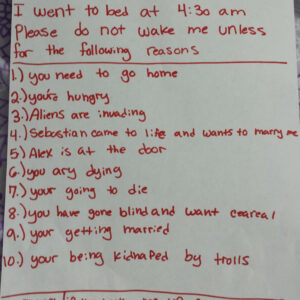 I went to bed at 4:30 am
Please do not wake me unless
for the following reasons
1.) you need to go home
2.) you're hungry
3.) Aliens are invading
4.) Sebastian came to life and wants to marry me
5) Alex is at the door
6.) you ary dying
7.) your going to die
8.) you have gone blind and want ceareal
9.) your getting married
10.) your being kidnaped by trolls